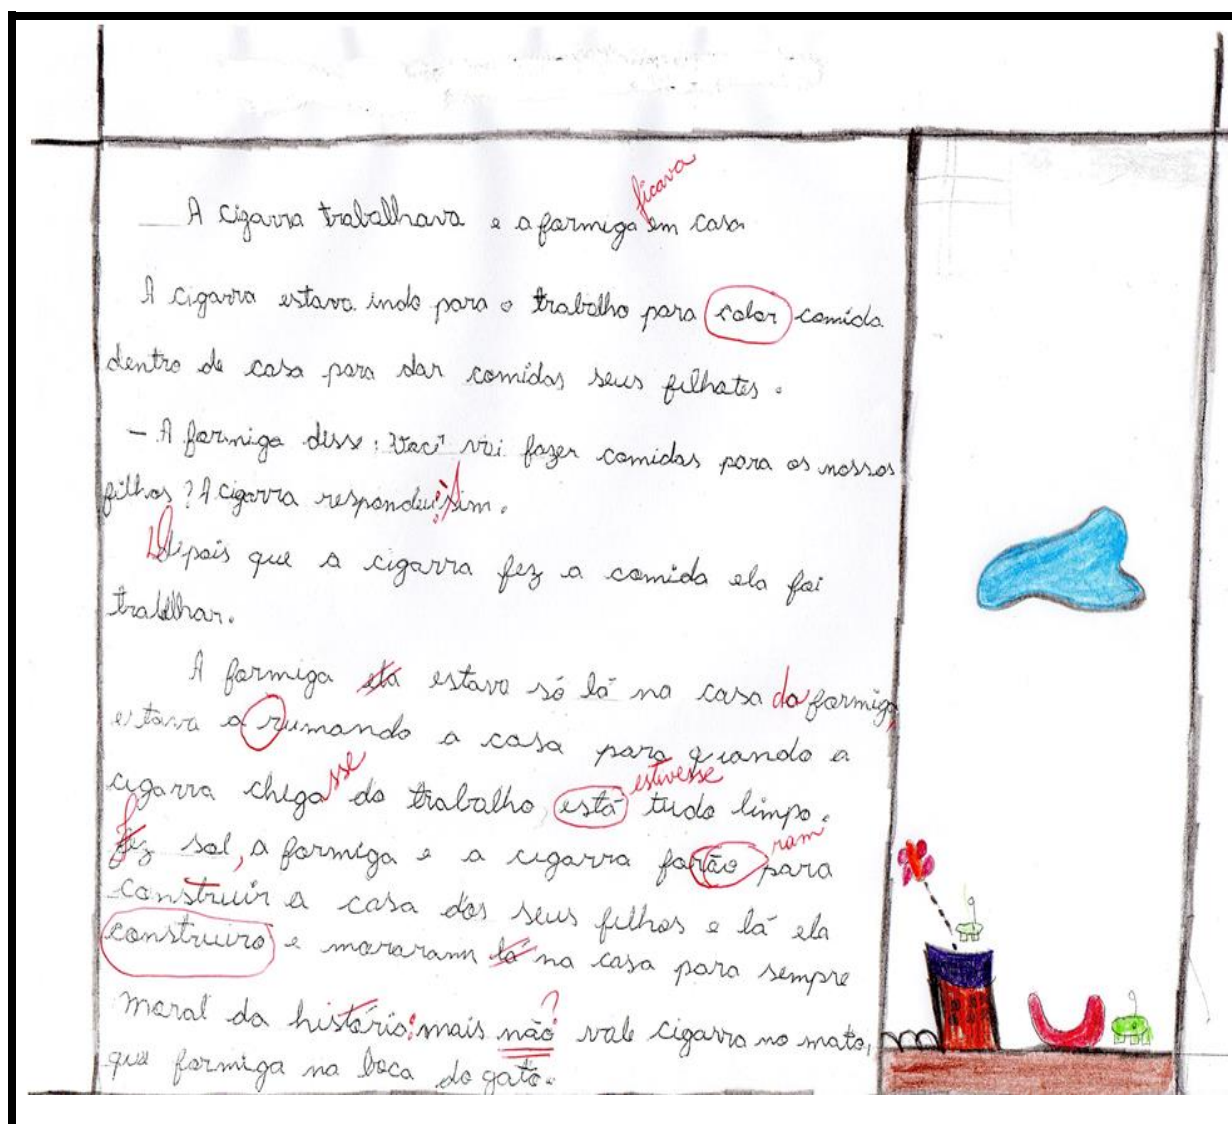 ficava
A cigarra trabalhava e a formiga em casa
A cigarra estava indo para o trabalho para colar comida
dentro de casa para dar comidas seus filhotes.
- A formiga disse: vai fazer comidas para os nossos
filhos? A cigarra respondeu: Sim.
Depois que a cigarra fez a comida ela foi
trabalhar.
A formiga ela estava só lá na casa da formiga,
estava a rumando a casa para quando a
sse estivesse
cigarra chega do trabalho, está tudo limpo.
ram
fez sol, a formiga e a cigarra forão para
construir a casa dos seus filhos e lá ela
construiro e moraram lá na casa para sempre
?
Moral da história: mais não vale cigarra no mato,
que formiga na boca do gato.